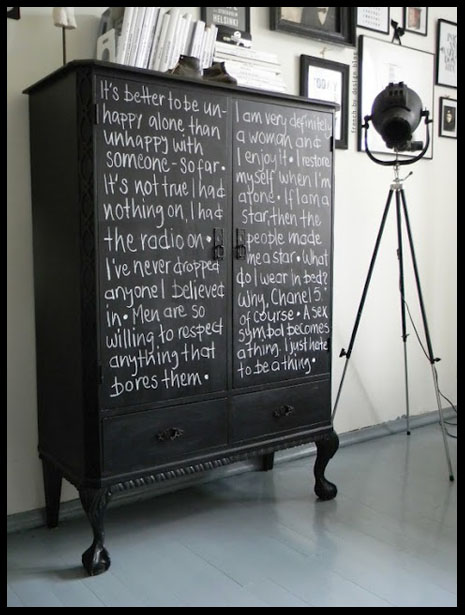 It's better to be un-
happy alone than
unhappy with
someone - so far •
It's not true I had
nothing on, I had
the radio on •
I've never dropped
anyone I believed
in • Men are so
willing to respect
anything that
bores them •
I am very definitely
a woman and
I enjoy it • I restore
myself when I'm
alone • If I am a
star, then the
people made
me a star • What
do I wear in bed?
Why, Chanel 5
of course • A sex
symbol becomes
a thing. I just hate
to be a thing •
HELSINKI
french by design blog